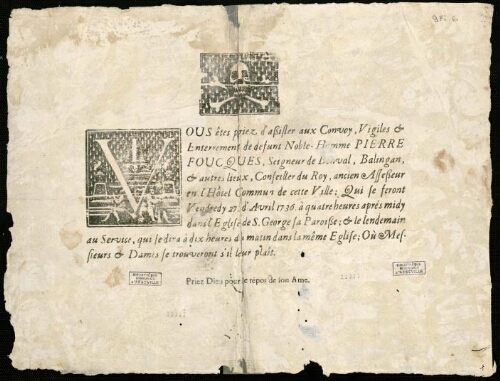 VOUS êtes priez d'assister aux Convoy, Vigiles &
Enterrement de defunt Noble-Homme PIERRE
FOUCQUES, Seigneur de Bonval, Balingan,
& autres lieux, Conseiller du Roy, ancien Assesseur
en l'Hôtel Commun de cette Ville; Qui se feront
Vendredy 27. d'Avril 1736. à quatre heures aprés midy
dans l'Eglise de S. George sa Paroisse; & le lendemain
au Service, qui se dira à dix heures du matin dans la même Eglise; Où Mes-
sieurs & Dames se trouveront s'il leur plaît.
Priez Dieu pour le repos de son Ame.